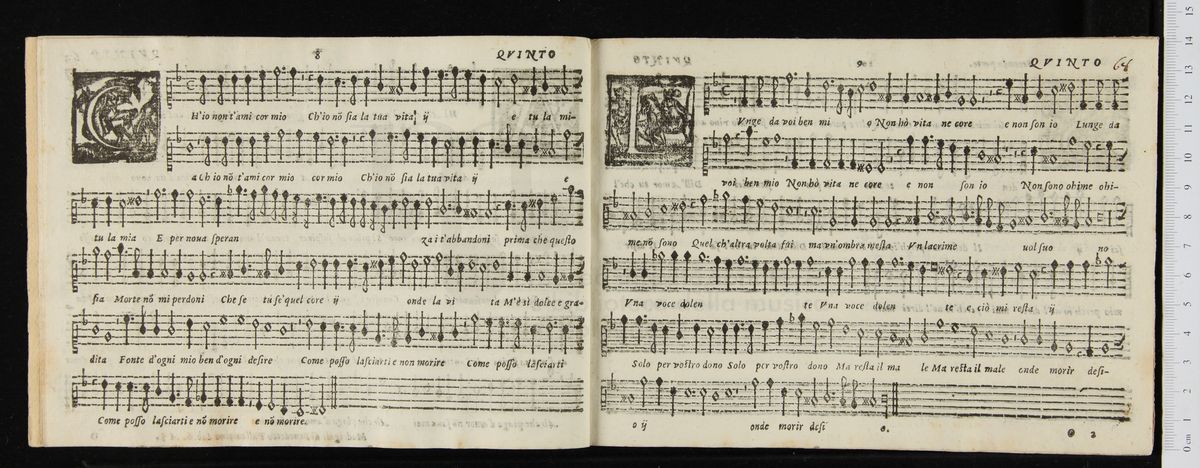 8
QVINTO
CH'io non t'ami cor mio Ch'io nō sia la tua vita ij e tu la mi-
a Ch io nō t'ami cor mio cor mio Ch'io nō sia la tua vita ij e
tu la mia E per noua speran za i t'abbandoni prima che questo
sia Morte nō mi perdoni Che se tu se'quel core ij onde la vi ta M'è sì dolce e gra-
dita Fonte d'ogni mio ben d'ogni desire Come posso lasciarti e non morire Come posso lasciarti
Come posso lasciarti e nō morire e nō morire.
9
QVINTO
68
LVnge da voi ben mi o Non hò vita ne core e non son io Lunge da
voi ben mio Non hò vita ne core e non son io Non sono ohime ohi-
me nō sono Quel ch'altra volta fui ma vn'ombra mesta Vn lacrime uol suo no
Vna voce dolen te Vna voce dolen te e, ciò mi resta ij
Solo per vostro dono Solo per vostro dono Ma resta il ma le Ma resta il male onde morir desi-
o ij onde morir desi o.
2
15
14
13
12
11
10
9
8
7
6
5
4
3
2
1
0 cm